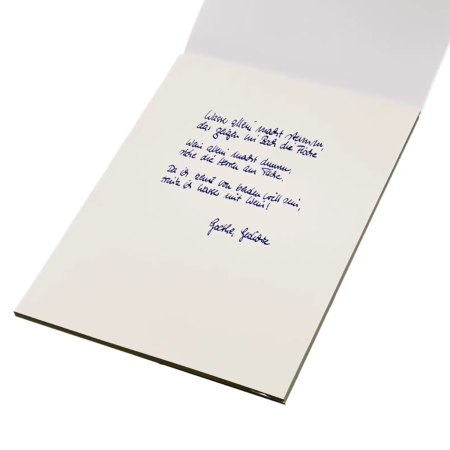 Wasser allein macht stumm,
das zeigen im Bach die Fische
Wein allein macht dumm,
siehe die Herren am Tische.
Da ich keins von beiden will sein,
trink ich Wasser mit Wein!
Goethe, Gedichte